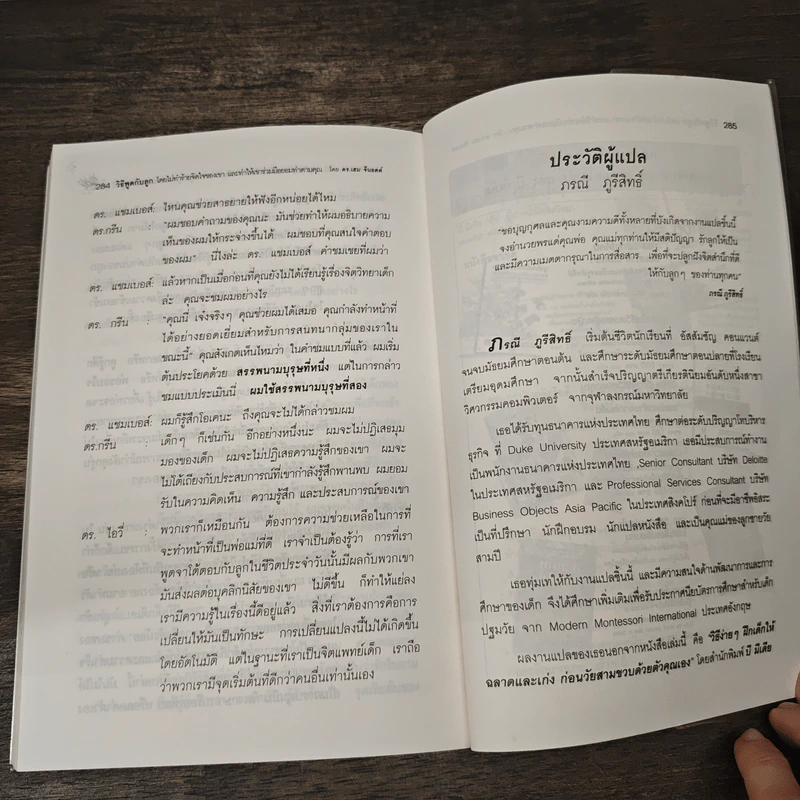 284 วิธีพูดกับลูก โดยไม่ทำร้ายจิตใจของเขา และทำให้เขาร่วมมือยอมทำตามคุณ โดย ดร.เฮม จีนอตต์
ดร. แชมเบอเส์: ไหนคุณช่วยสาธยายให้ฟังอีกหน่อยได้ไหม
ดร.กรีน : "ผมชอบคำถามของคุณนะ มันช่วยทำให้ผมอธิบายความ
เห็นของผมให้กระจ่างขึ้นได้ ผมชอบที่คุณสนใจคำตอบ
ของผม" นี่ไงล่ะ ดร. แชมเบอเส์ คำชมเชยที่ผมว่า
ดร. แชมเบอเส์: แล้วหากเป็นเมื่อก่อนที่คุณยังไม่ได้เรียนรู้เรื่องจิตวิทยาเด็ก
ล่ะ คุณจะชมผมอย่างไร
ดร. กรีน : "คุณนี่ เจ๋งจริงๆ คุณช่วยผมได้เสมอ คุณกำลังทำหน้าที่
ได้อย่างยอดเยี่ยมสำหรับการสนทนากลุ่มของเราใน
ขณะนี้" คุณสังเกตเห็นไหมว่า ในคำชมแบบที่แล้ว ผมเริ่ม
ต้นประโยคด้วย สรรพนามบุรุษที่หนึ่ง แต่ในการกล่าว
ชมแบบประเมินนี้ ผมใช้สรรพนามบุรุษที่สอง
ดร. แชมเบอเส์: ผมก็รู้สึกโอเคนะ ถึงคุณจะไม่ได้กล่าวชมผม
ดร.กรีน : เด็กๆ ก็เช่นกัน อีกอย่างหนึ่งนะ ผมจะไม่ปฏิเสธมุม
มองของเด็ก ผมจะไม่ปฏิเสธความรู้สึกของเขา ผมจะ
ไม่โต้เถียงกับประสบการณ์ที่เขากำลังรู้สึกพานพบ ผมยอม
รับในความคิดเห็น ความรู้สึก และประสบการณ์ของเขา
ดร. ไอวี่ : พวกเราก็เหมือนกัน ต้องการความช่วยเหลือในการที่
จะทำหน้าที่เป็นพ่อแม่ที่ดี เราจำเป็นต้องรู้ว่า การที่เรา
พูดจาโต้ตอบกับลูกในชีวิตประจำวันนั้นมีผลกับพวกเขา
มันส่งผลต่อบุคลิกนิสัยของเขา ไม่ดีขึ้น ก็ทำให้แย่ลง
เรามีความรู้ในเรื่องนี้ดีอยู่แล้ว สิ่งที่เราต้องการคือการ
เปลี่ยนให้มันเป็นทักษะ การเปลี่ยนแปลงนี้ไม่ได้เกิดขึ้น
โดยอัตโนมัติ แต่ในฐานะที่เราเป็นจิตแพทย์เด็ก เราถือ
ว่าพวกเรามีจุดเริ่มต้นที่ดีกว่าคนอื่นเท่านั้นเอง
285
ประวัติผู้แปล
ภรณี ภูรีสิทธิ์
"ขอบุญกุศลและคุณงามความดีทั้งหลายที่บังเกิดจากงานแปลชิ้นนี้
จงอำนวยพรแด่คุณพ่อ คุณแม่ทุกท่านให้มีสติปัญญา รักลูกให้เป็น
และมีความเมตตากรุณาในการสื่อสาร เพื่อที่จะปลูกฝังจิตสำนึกที่ดี
ให้กับลูกๆ ของท่านทุกคน"
ภรณี ภูรีสิทธิ์
ภรณี ภูรีสิทธิ์ เริ่มต้นชีวิตนักเรียนที่ อัสสัมชัญ คอนแวนต์
จนจบมัธยมศึกษาตอนต้น และศึกษาระดับมัธยมศึกษาตอนปลายที่โรงเรียน
เตรียมอุดมศึกษา จากนั้นสำเร็จปริญญาตรีเกียรตินิยมอันดับหนึ่งสาขา
วิศวกรรมคอมพิวเตอร์ จากจุฬาลงกรณ์มหาวิทยาลัย
เธอได้รับทุนธนาคารแห่งประเทศไทย ศึกษาต่อระดับปริญญาโทบริหาร
ธุรกิจ ที่ Duke University ประเทศสหรัฐอเมริกา เธอมีประสบการณ์ทำงาน
เป็นพนักงานธนาคารแห่งประเทศไทย ,Senior Consultant บริษัท Deloitte
ในประเทศสหรัฐอเมริกา และ Professional Services Consultant บริษัท
Business Objects Asia Pacific ในประเทศสิงคโปร์ ก่อนที่จะมีอาชีพอิสระ
เป็นที่ปรึกษา นักฝึกอบรม นักแปลหนังสือ และเป็นคุณแม่ของลูกชายวัย
สามปี
เธอทุ่มเทให้กับงานแปลชิ้นนี้ และมีความสนใจด้านพัฒนาการและการ
ศึกษาของเด็ก จึงได้ศึกษาเพิ่มเติมเพื่อรับประกาศนียบัตรการศึกษาสำหรับเด็ก
ปฐมวัย จาก Modern Montessori International ประเทศอังกฤษ
ผลงานแปลของเธอนอกจากหนังสือเล่มนี้ คือ "วิธีง่ายๆ ฝึกเด็กให้
ฉลาดและเก่ง ก่อนวัยสามขวบด้วยตัวคุณเอง" โดยสำนักพิมพ์ บี มีเดีย